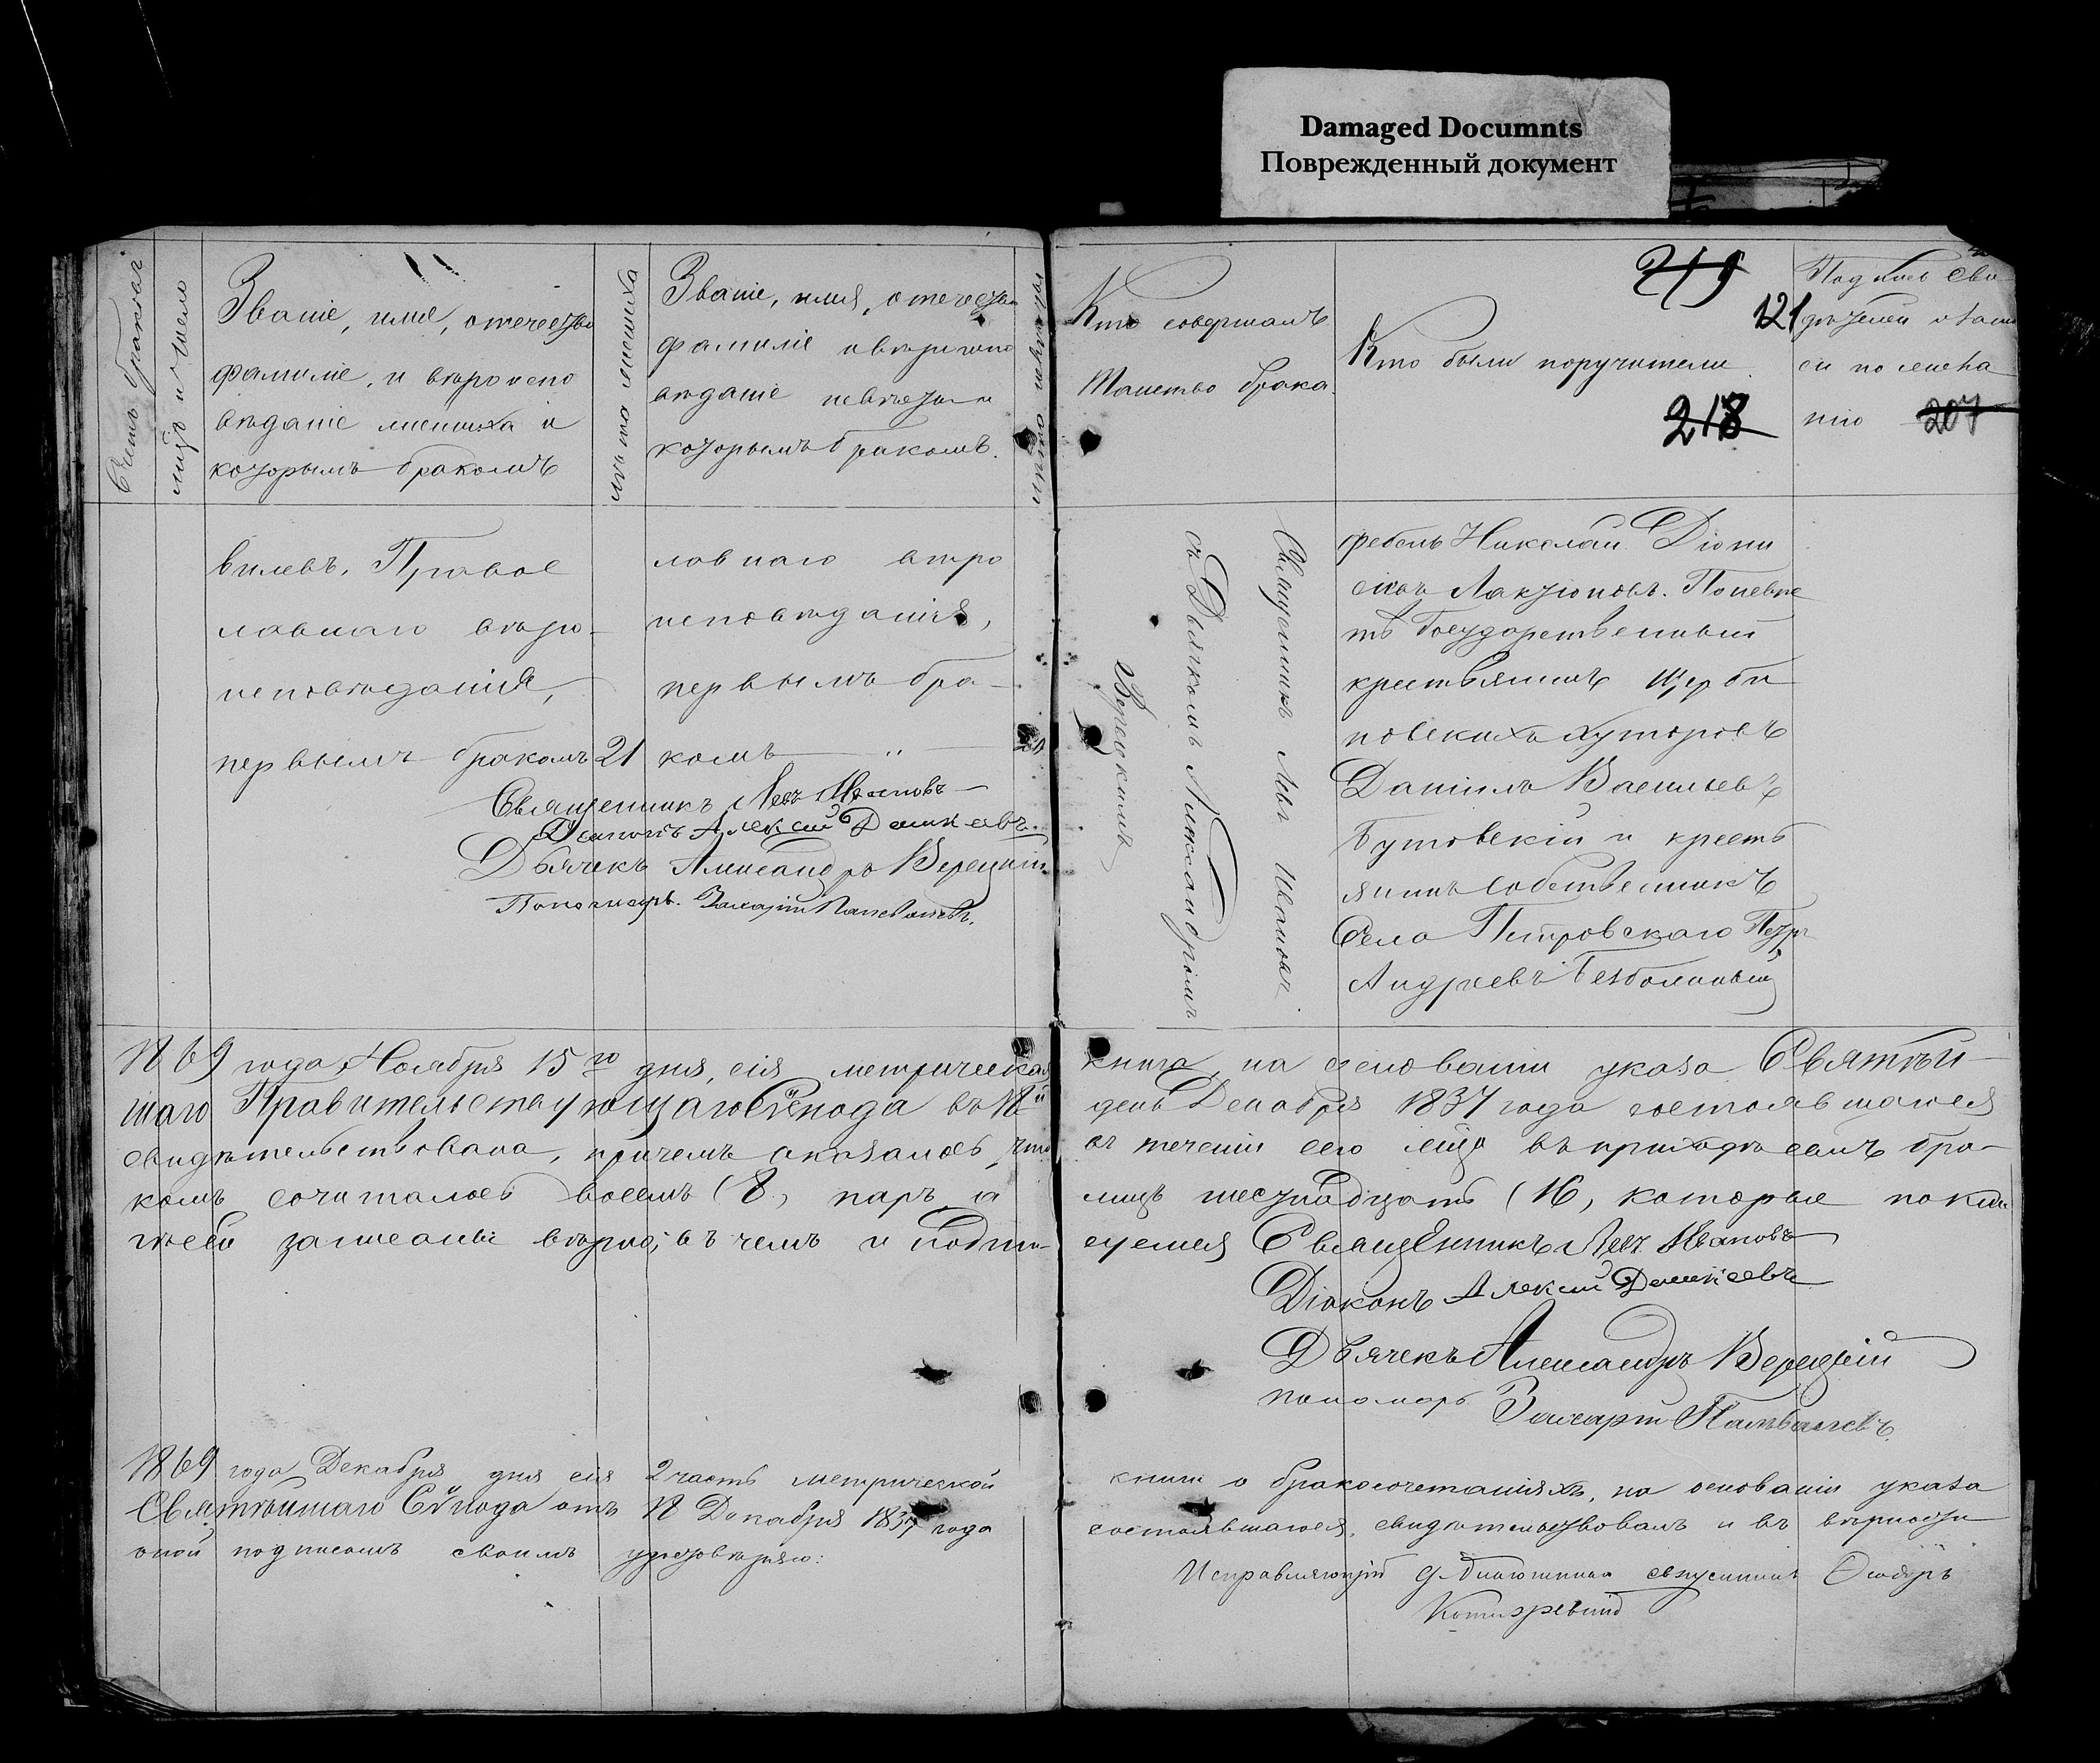 Damaged Documnts
Поврежденный документ
Счетъ браковъ
лицъ и число
Званіе, имя, отечество
фамиліе, и вѣроиспо
вѣданіе жениха и
которымъ бракомъ
лѣта жениха
Званіе, имя, отечество
фамиліе и вѣроиспо
вѣданіе невѣсты и
которымъ бракомъ.
Кто совершалъ
Таинство брака.
Кто были поручители
219
121
218
Подпись сви
дѣтелей о запи
си по жела
нію 207
вилевъ. Правос
лавнаго вѣро-
исповѣданія,
первымъ бракомъ 21
лавнаго вѣро
исповѣданія,
первымъ бра-
комъ
Священникъ Левъ Ивановъ
Діаконъ Алексій
Дьячекъ Александръ Верецкій
Пономарь Захарій
Священникъ Левъ Ивановъ
съ Дьячкомъ Александромъ
Верецкимъ
фебель Николай Діони
сіевъ Лактіоновъ. По невѣс
тѣ Государственный
крестьянинъ Щерби
новскихъ хуторовъ
Даніилъ Васильевъ
Бутовскій и кресть
янинъ собственникъ
Села Петровскаго Петръ
Андреевъ Безболинный
1869 года Ноября 15го дня, сія метрическая книга, на основаніи указа Святѣй-
шаго Правительствующаго Сѵнода въ 18й день Декабря 1837 года состоявшагося
свидѣтельствована, причемъ оказалось, что въ теченіи сего года въ приходѣ семъ бра-
комъ сочиталось восемь (8) паръ, а лицъ шестнадцать (16), которые по кни
гѣ сей записаны вѣрно; въ чемъ и подпи-
суемся Священникъ Левъ Ивановъ
Діаконъ Алексій
Дьячекъ Александръ Верецкій
пономарь Захарій
1869 года Декабря дня сія 2 часть метрической книги о бракосочетаніяхъ, на основаніи указа
Святѣйшаго Сѵнода отъ 18 Декабря 1837 года состоявшагося, свидѣтельствовалъ и въ вѣрности
оной подписомъ своимъ удостовѣряю:
Исправляющій д. благочиннаго священникъ Ѳеодоръ